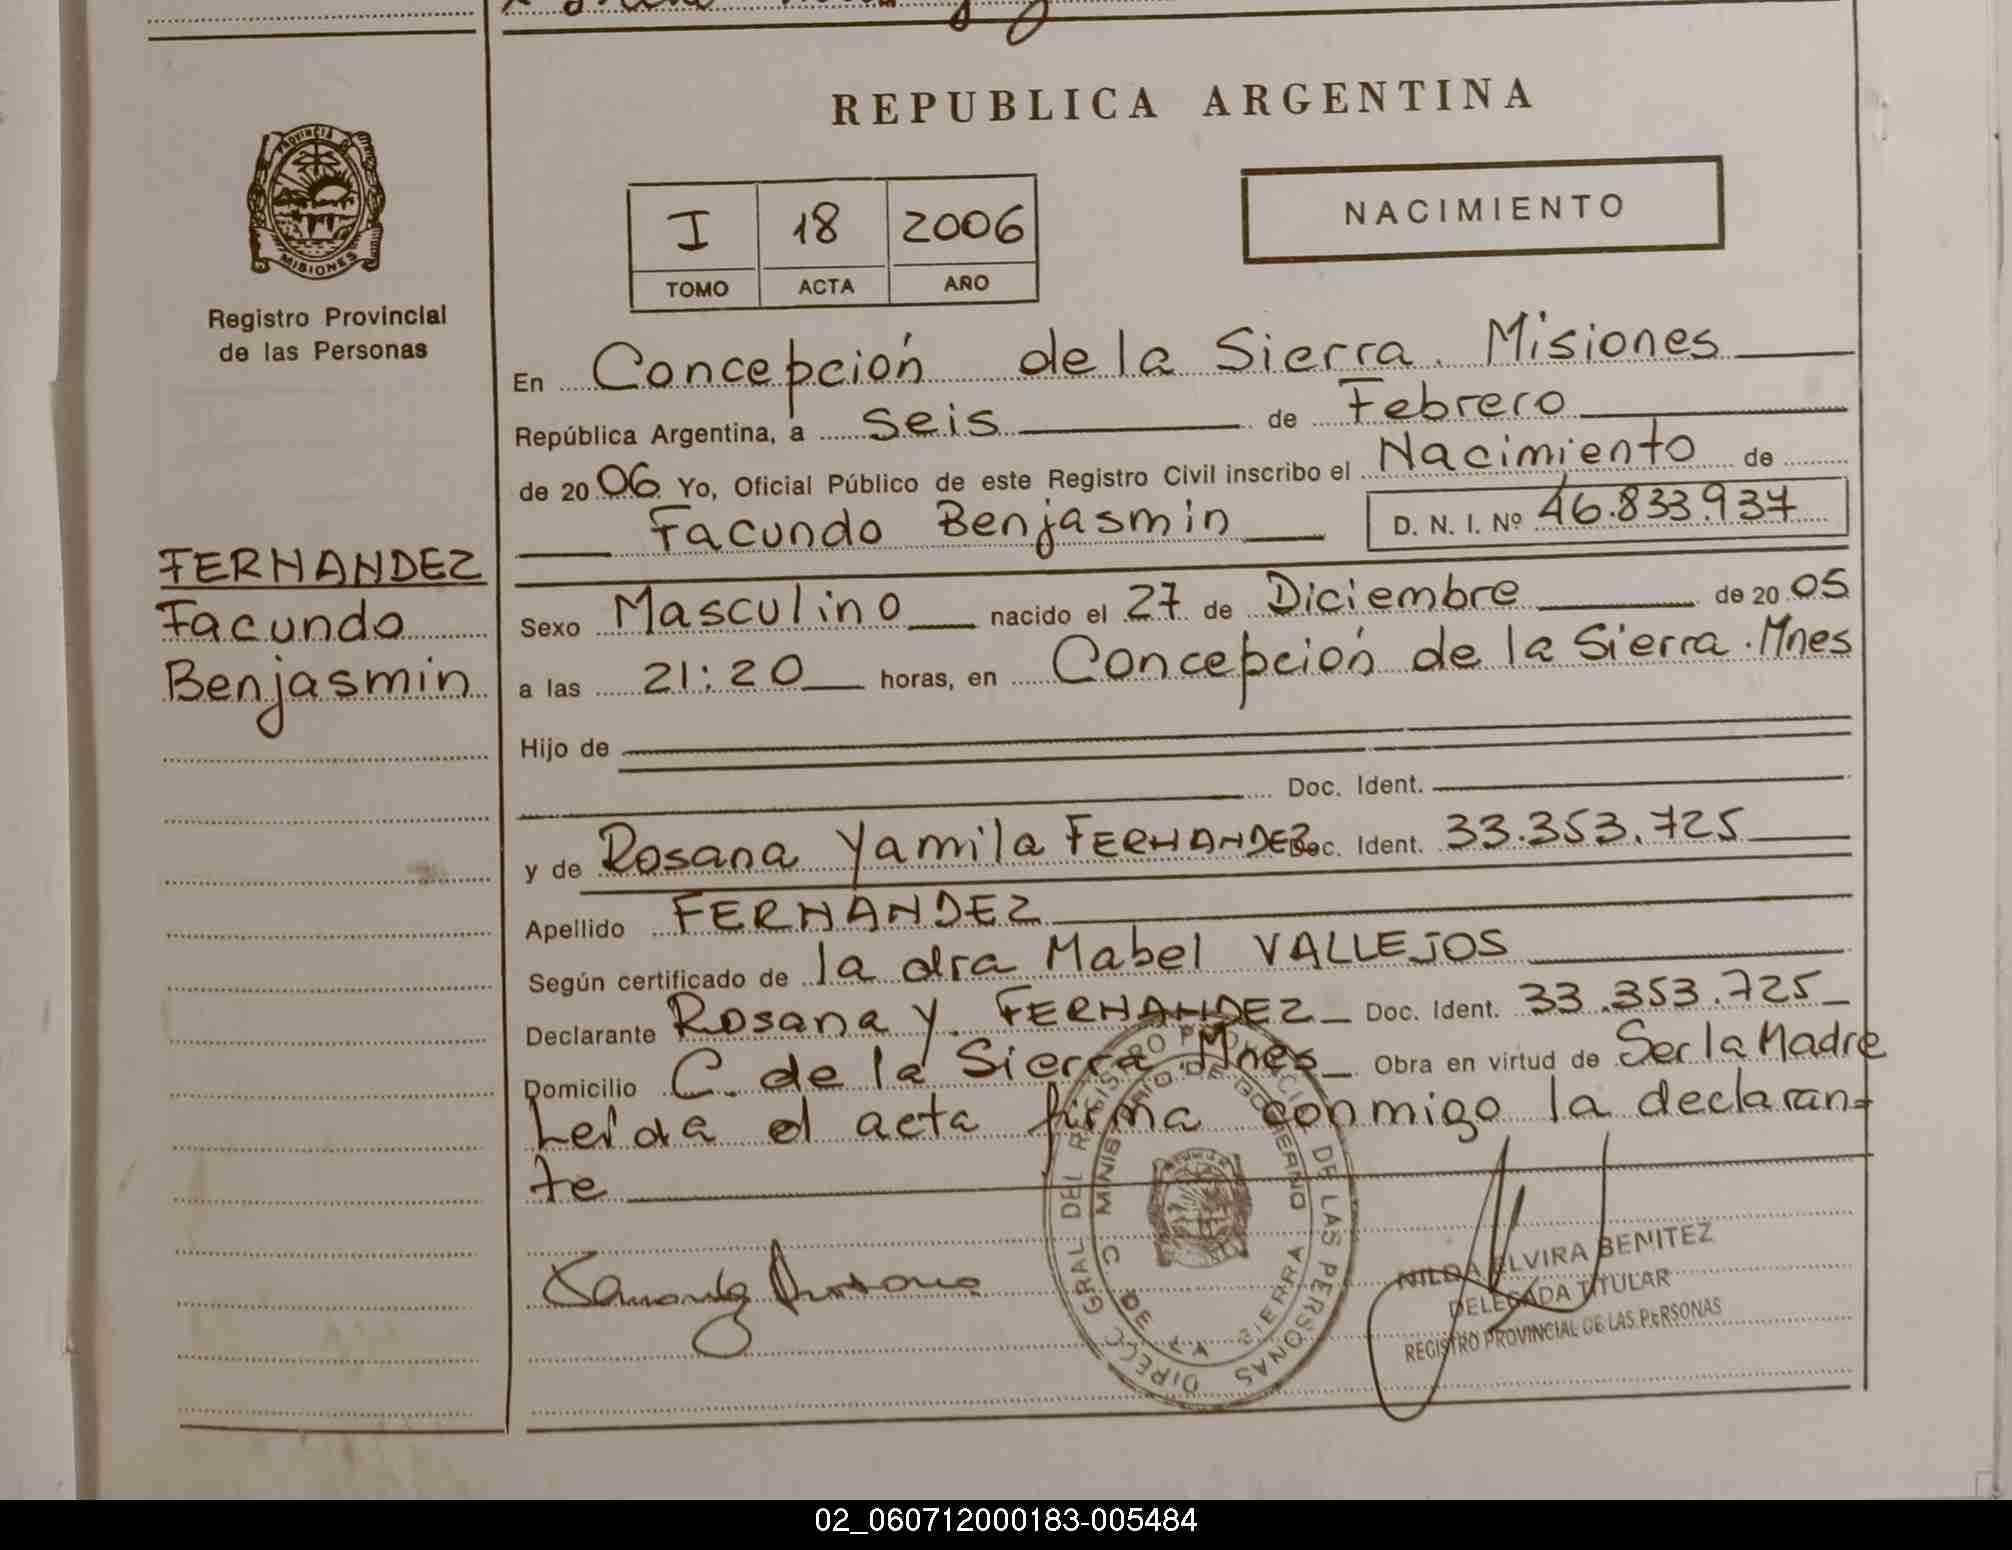 REPUBLICA ARGENTINA
PROVINCIA
MISIONES
Registro Provincial
de las Personas
I 18 2006
TOMO ACTA AÑO
NACIMIENTO
En Concepción de la Sierra. Misiones
República Argentina, a seis de Febrero
de 2006 Yo, Oficial Público de este Registro Civil inscribo el Nacimiento de
Facundo Benjasmin D. N. I. Nº 46.833.937
FERNANDEZ
Facundo
Benjasmin
Sexo Masculino nacido el 27 de Diciembre de 2005
a las 21:20 horas, en Concepción de la Sierra. Mnes
Hijo de
Doc. Ident.
y de Rosana Yamila FERNANDEZ Doc. Ident. 33.353.725
Apellido FERNANDEZ
Según certificado de la dra Mabel VALLEJOS
Declarante Rosana Y. FERNANDEZ Doc. Ident. 33.353.725
Domicilio C. de la Sierra Mnes Obra en virtud de Ser la Madre
Leída el acta firma conmigo la declaran-
te
DIRECC. GRAL DEL REGISTRO PROVINCIAL DE LAS PERSONAS
MINISTERIO DE GOBIERNO
C. DE LA SIERRA
NILDA ELVIRA BENITEZ
DELEGADA TITULAR
REGISTRO PROVINCIAL DE LAS PERSONAS
02_060712000183-005484